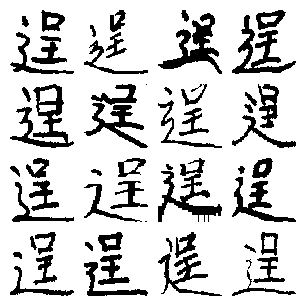 逞逞逞逞
逞逞逞逞
逞逞逞逞
逞逞逞逞